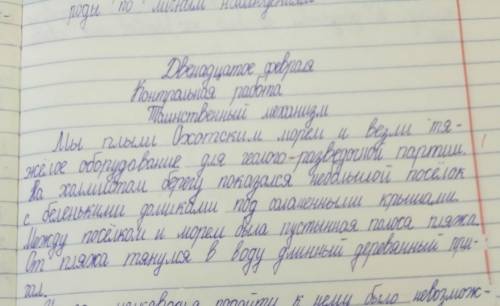 роды по личным наблюдениям
Двенадцатое февраля
Контрольная работа
Таинственный механизм
Мы плыли Охотским морем и везли тя-
жёлое оборудование для геолого-разведочной партии.
На холмистом берегу показался небольшой посёлок
с беленькими домиками под
крышами.
Между посёлком и морем была пустынная полоса пляжа.
От пляжа тянулся в воду длинный деревянный при-
чал.
подойти к нему было невозмож-